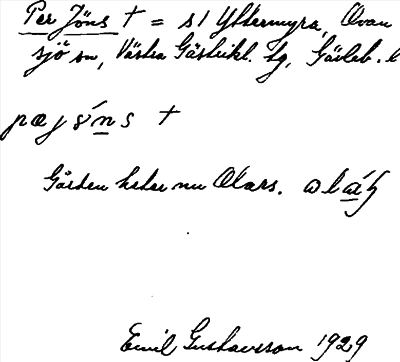 Per Jöns † = s1 Yttermyra, Ovan
sjö sn, Västra Gästrikl. hg, Gävleb. l
pæjsǿns †
Gården heter nu Olars. ωláʂ
Emil Gustavsson 1929